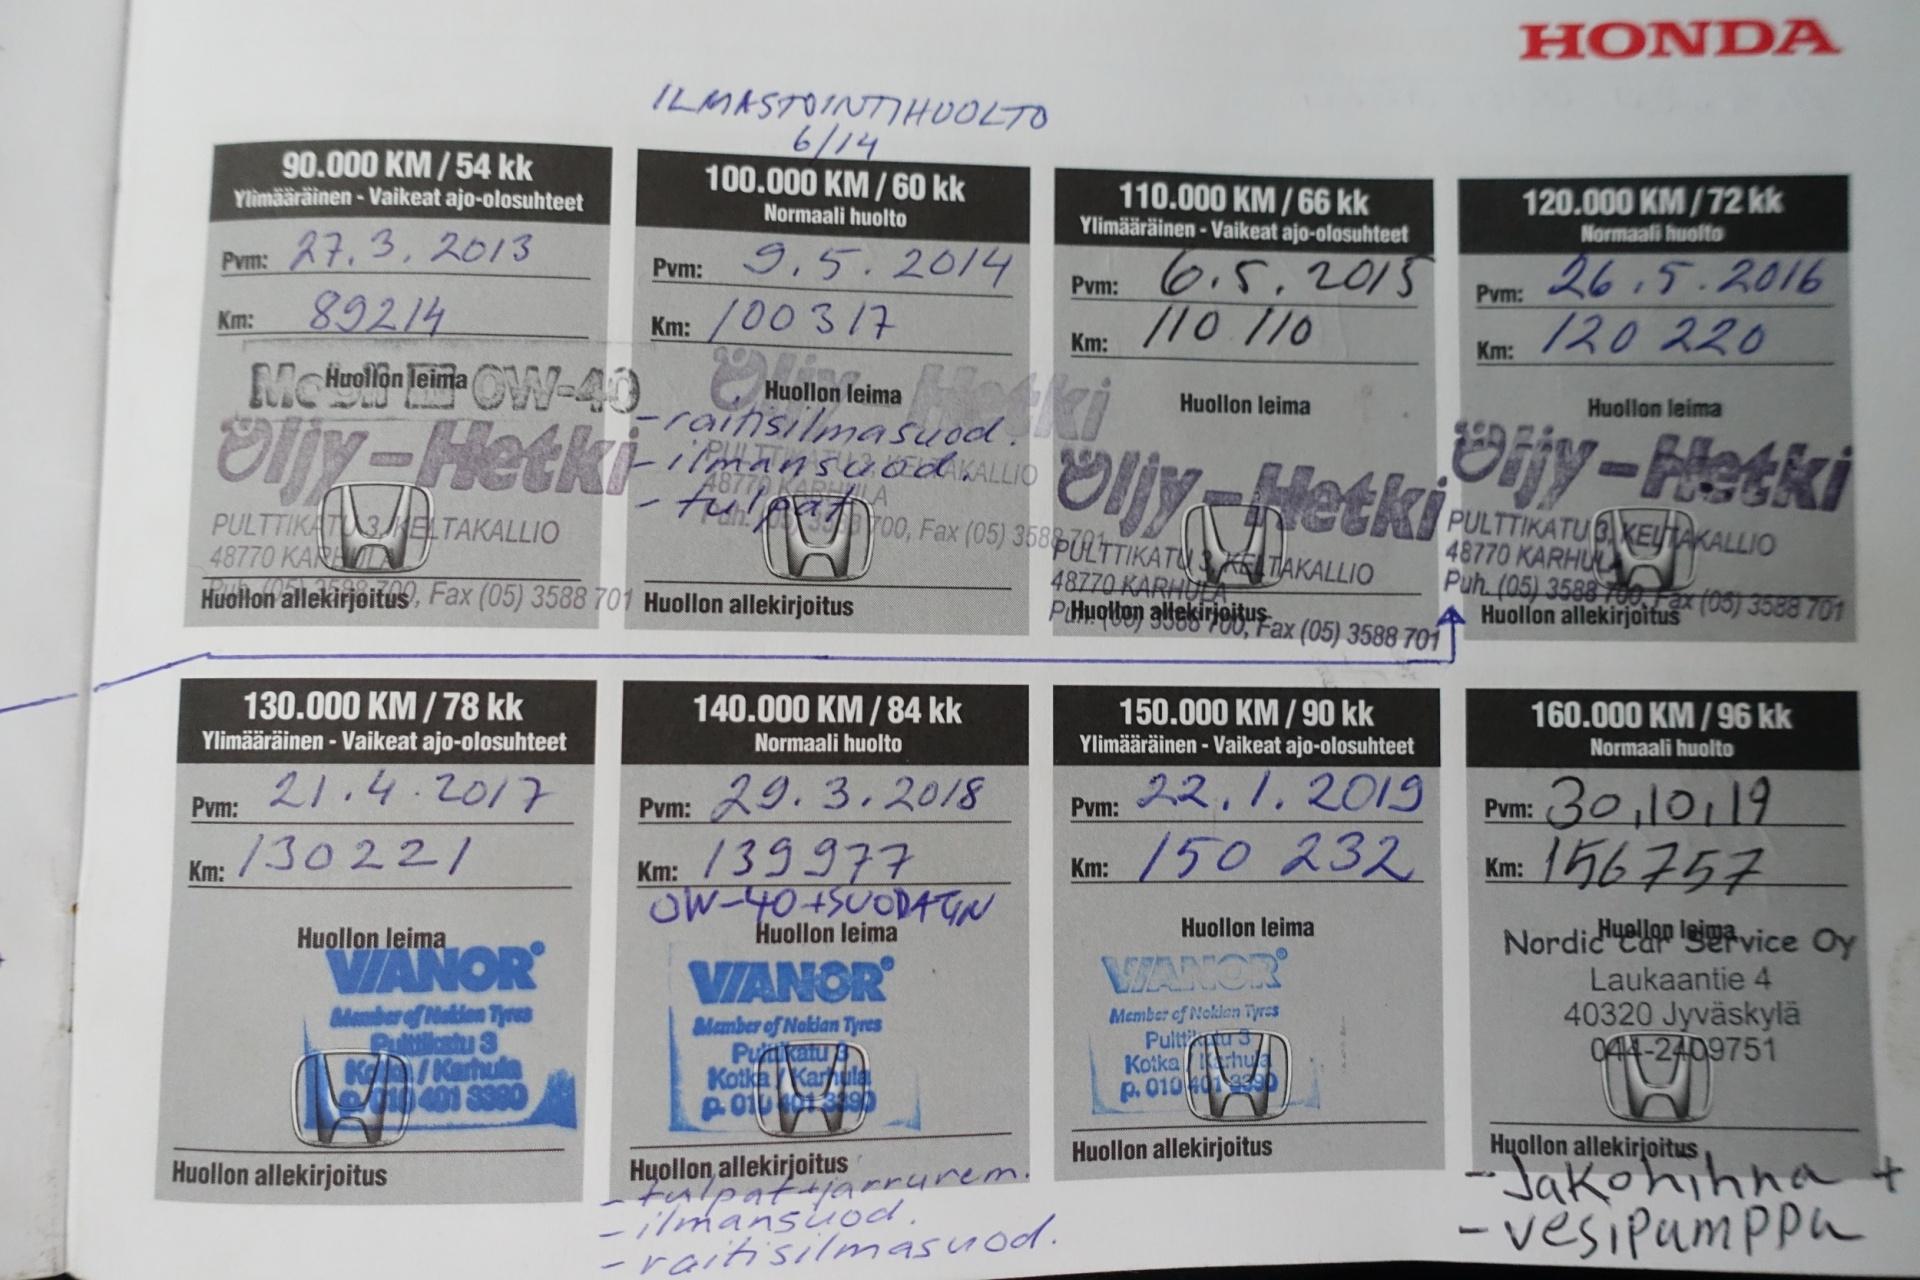 HONDA
ILMASTOINTIHUOLTO
6/14
90.000 KM / 54 kk
Ylimääräinen - Vaikeat ajo-olosuhteet
Pvm: 27.3.2013
Km: 89214
Huollon leima
Mobil 0W-40
Öljy-Hetki
PULTTIKATU 3, KELTAKALLIO
48770 KARHULA
Puh. (05) 3588 700, Fax (05) 3588 701
Huollon allekirjoitus
100.000 KM / 60 kk
Normaali huolto
Pvm: 9.5.2014
Km: 100317
Huollon leima
Öljy-Hetki
- raitisilmasuod.
- ilmansuod.
- tulpat
PULTTIKATU 3, KELTAKALLIO
48770 KARHULA
Puh. (05) 3588 700, Fax (05) 3588 701
Huollon allekirjoitus
110.000 KM / 66 kk
Ylimääräinen - Vaikeat ajo-olosuhteet
Pvm: 6.5.2015
Km: 110 110
Huollon leima
Öljy-Hetki
PULTTIKATU 3, KELTAKALLIO
48770 KARHULA
Puh. (05) 3588 700, Fax (05) 3588 701
Huollon allekirjoitus
120.000 KM / 72 kk
Normaali huolto
Pvm: 26.5.2016
Km: 120 220
Huollon leima
Öljy-Hetki
PULTTIKATU 3, KELTAKALLIO
48770 KARHULA
Puh. (05) 3588 700, Fax (05) 3588 701
Huollon allekirjoitus
130.000 KM / 78 kk
Ylimääräinen - Vaikeat ajo-olosuhteet
Pvm: 21.4.2017
Km: 130221
Huollon leima
VIANOR
Member of Nokian Tyres
Pulttikatu 3
Kotka / Karhula
p. 010 401 3390
Huollon allekirjoitus
140.000 KM / 84 kk
Normaali huolto
Pvm: 29.3.2018
Km: 139977
0W-40+SUODATIN
Huollon leima
VIANOR
Member of Nokian Tyres
Pulttikatu 3
Kotka / Karhula
p. 010 401 3390
Huollon allekirjoitus
- tulpat+jarrurem.
- ilmansuod.
- raitisilmasuod.
150.000 KM / 90 kk
Ylimääräinen - Vaikeat ajo-olosuhteet
Pvm: 22.1.2019
Km: 150 232
Huollon leima
VIANOR
Member of Nokian Tyres
Pulttikatu 3
Kotka / Karhula
p. 010 401 3390
Huollon allekirjoitus
160.000 KM / 96 kk
Normaali huolto
Pvm: 30,10,19
Km: 156757
Huollon leima
Nordic Car Service Oy
Laukaantie 4
40320 Jyväskylä
044-2409751
Huollon allekirjoitus
- Jakohihna +
- vesipumppu